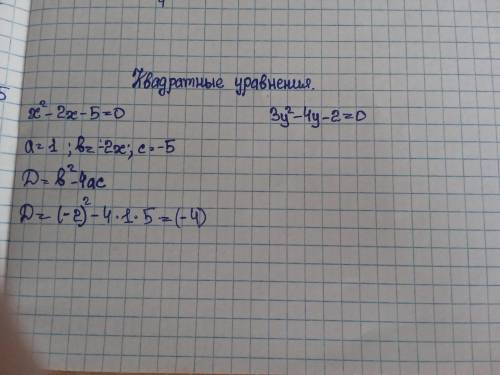 Квадратные уравнения.
x²-2x-5=0
3y²-4y-2=0
a=1 ; b=-2x; c=-5
D=b²-4ac
D=(-2)²-4·1·5=(-4)